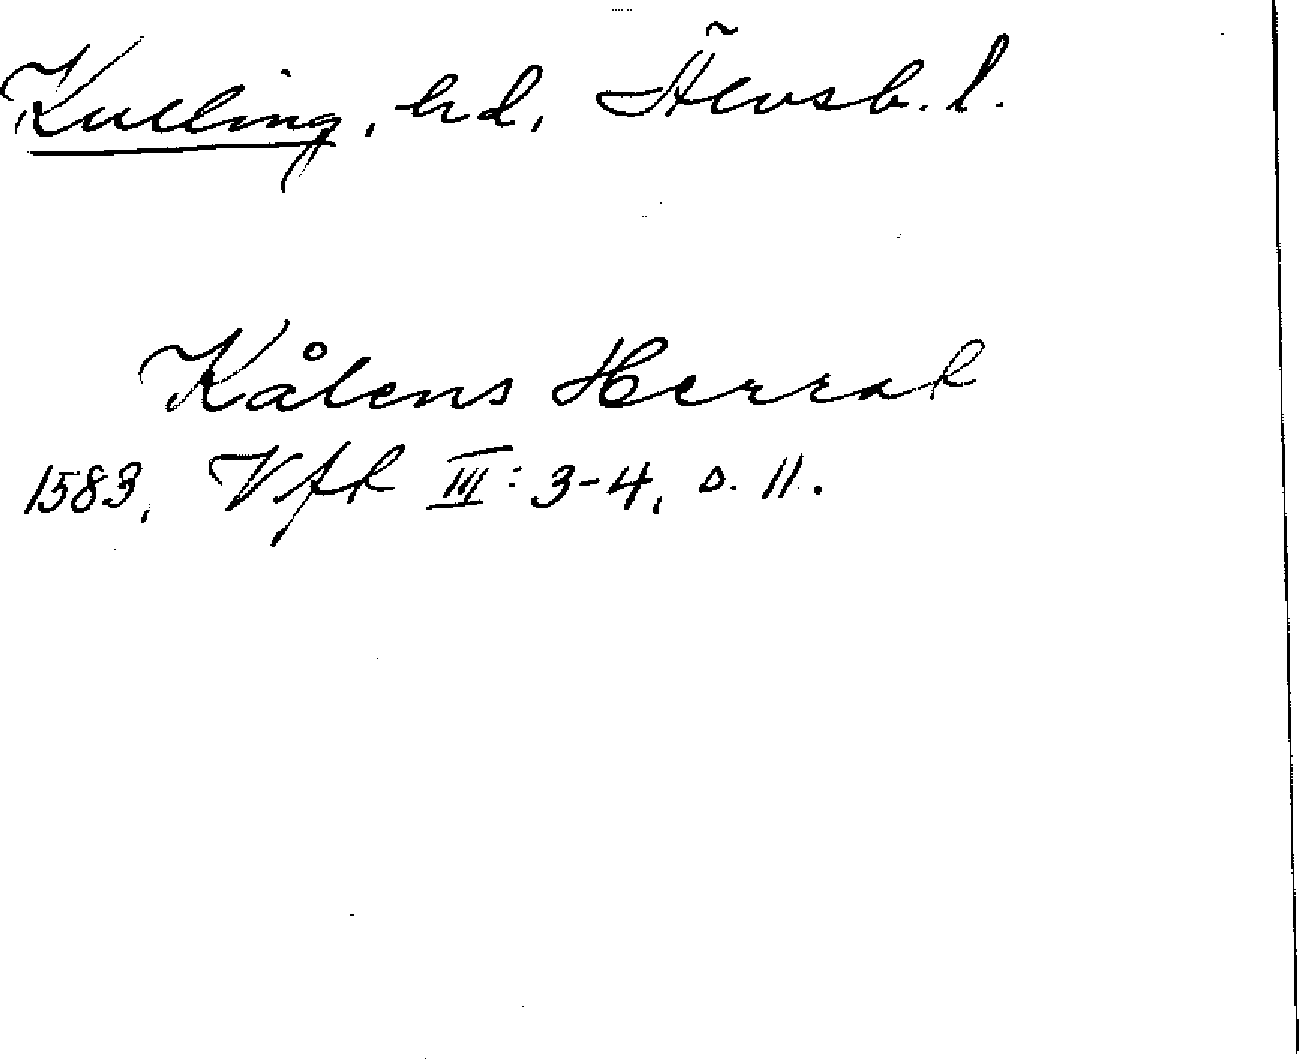 Kulling, hd, Älvsb. l.
Kålens Herrad
1583, Vfk III: 3-4, s. 11.